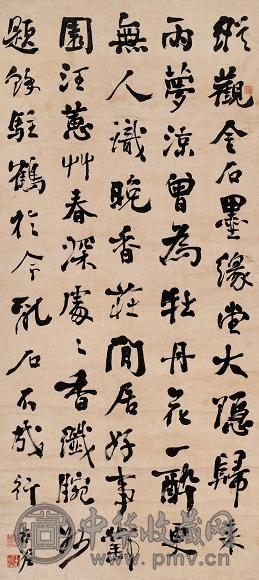 縱觀金石墨緣堂大隱歸来
雨夢涼曾為牡丹花一醉更
無人識晚香莊閒居好事
園汪蕙艸春深處〻香纖腕
題餘駐鶴於今亂石不成行
中华收藏网
www.pmv.cn